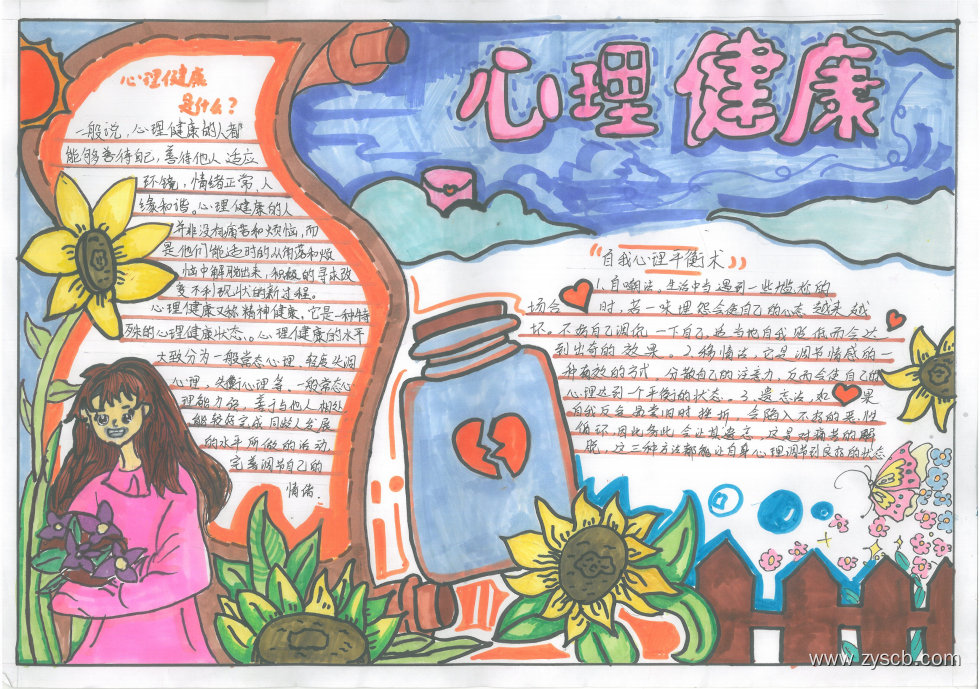 心理健康
心理健康
是什么?
一般说,心理健康的人都
能够善待自己,善待他人 适应
环镜,情绪正常,人
缘和谐。心理健康的人
并非没有痛苦和烦恼,而
是他们能适时的从痛苦和烦
恼中解脱出来,积极的寻求改
变不利现状的新过程。
心理健康又称精神健康,它是一种特
殊的心理健康状态。心理健康的水平
大致分为一般常态心理、轻度失调
心理,失衡心理等。一般常态心
理能力强,善于与他人相处
能较好完成同龄人发展
的水平所做的活动,
完善调节自己的
情绪.
"自我心理平衡术"
1.自嘲法,生活中当遇到一些尴尬的
场合 时,若一味埋怨会使自己的心态 越来 越
坏。不如自己调侃一下自己,适当地自我贬低而会达
到出奇的效果。2.移情法,它是调节情感的一
种有效的方式 分散自己的注意力,反而会使自己的
心理达到 个平衡的状态 3.遗忘法,如 果
自我反会 旧时 挫折 会陷入不利的恶性
循环,因此务必 会让其遗忘,这是对痛苦的解
脱,这三种方法都能让自身心理调节到良好的状态
www.zyscb.com